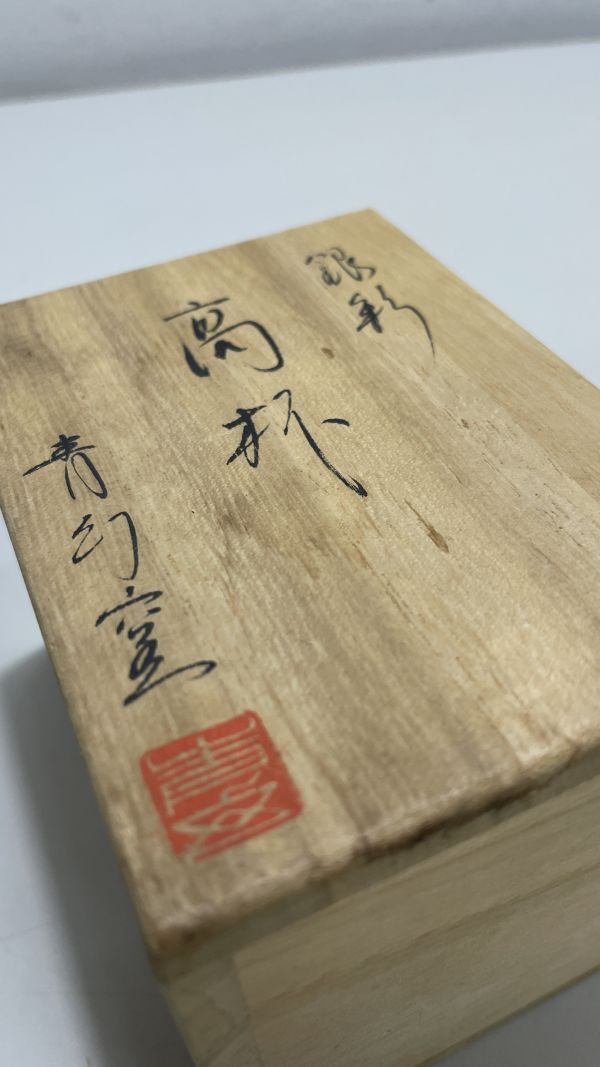 銀彩
高杯
青幻窯